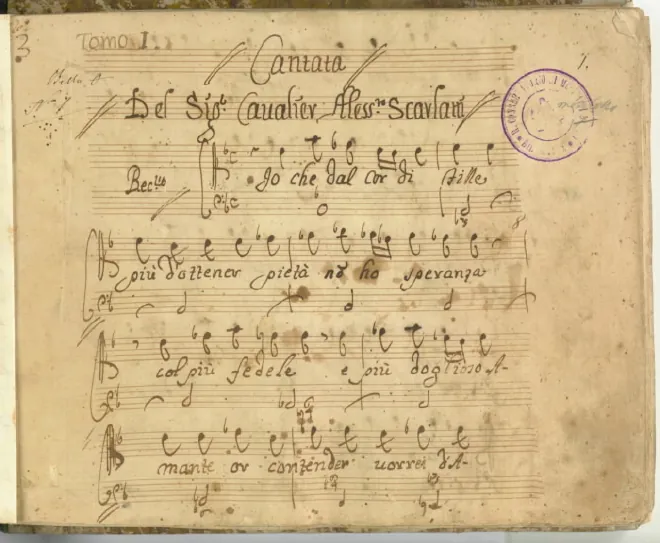 3 Tomo I
Cantata
1.
Del Sigr. Cavalier Alessro Scarlatti
Recvo
Io che dal cor di Fille
più d'ottener pietà nō ho speranza
col più fedele e più doglioso A-
mante or contender vorrei d'A-